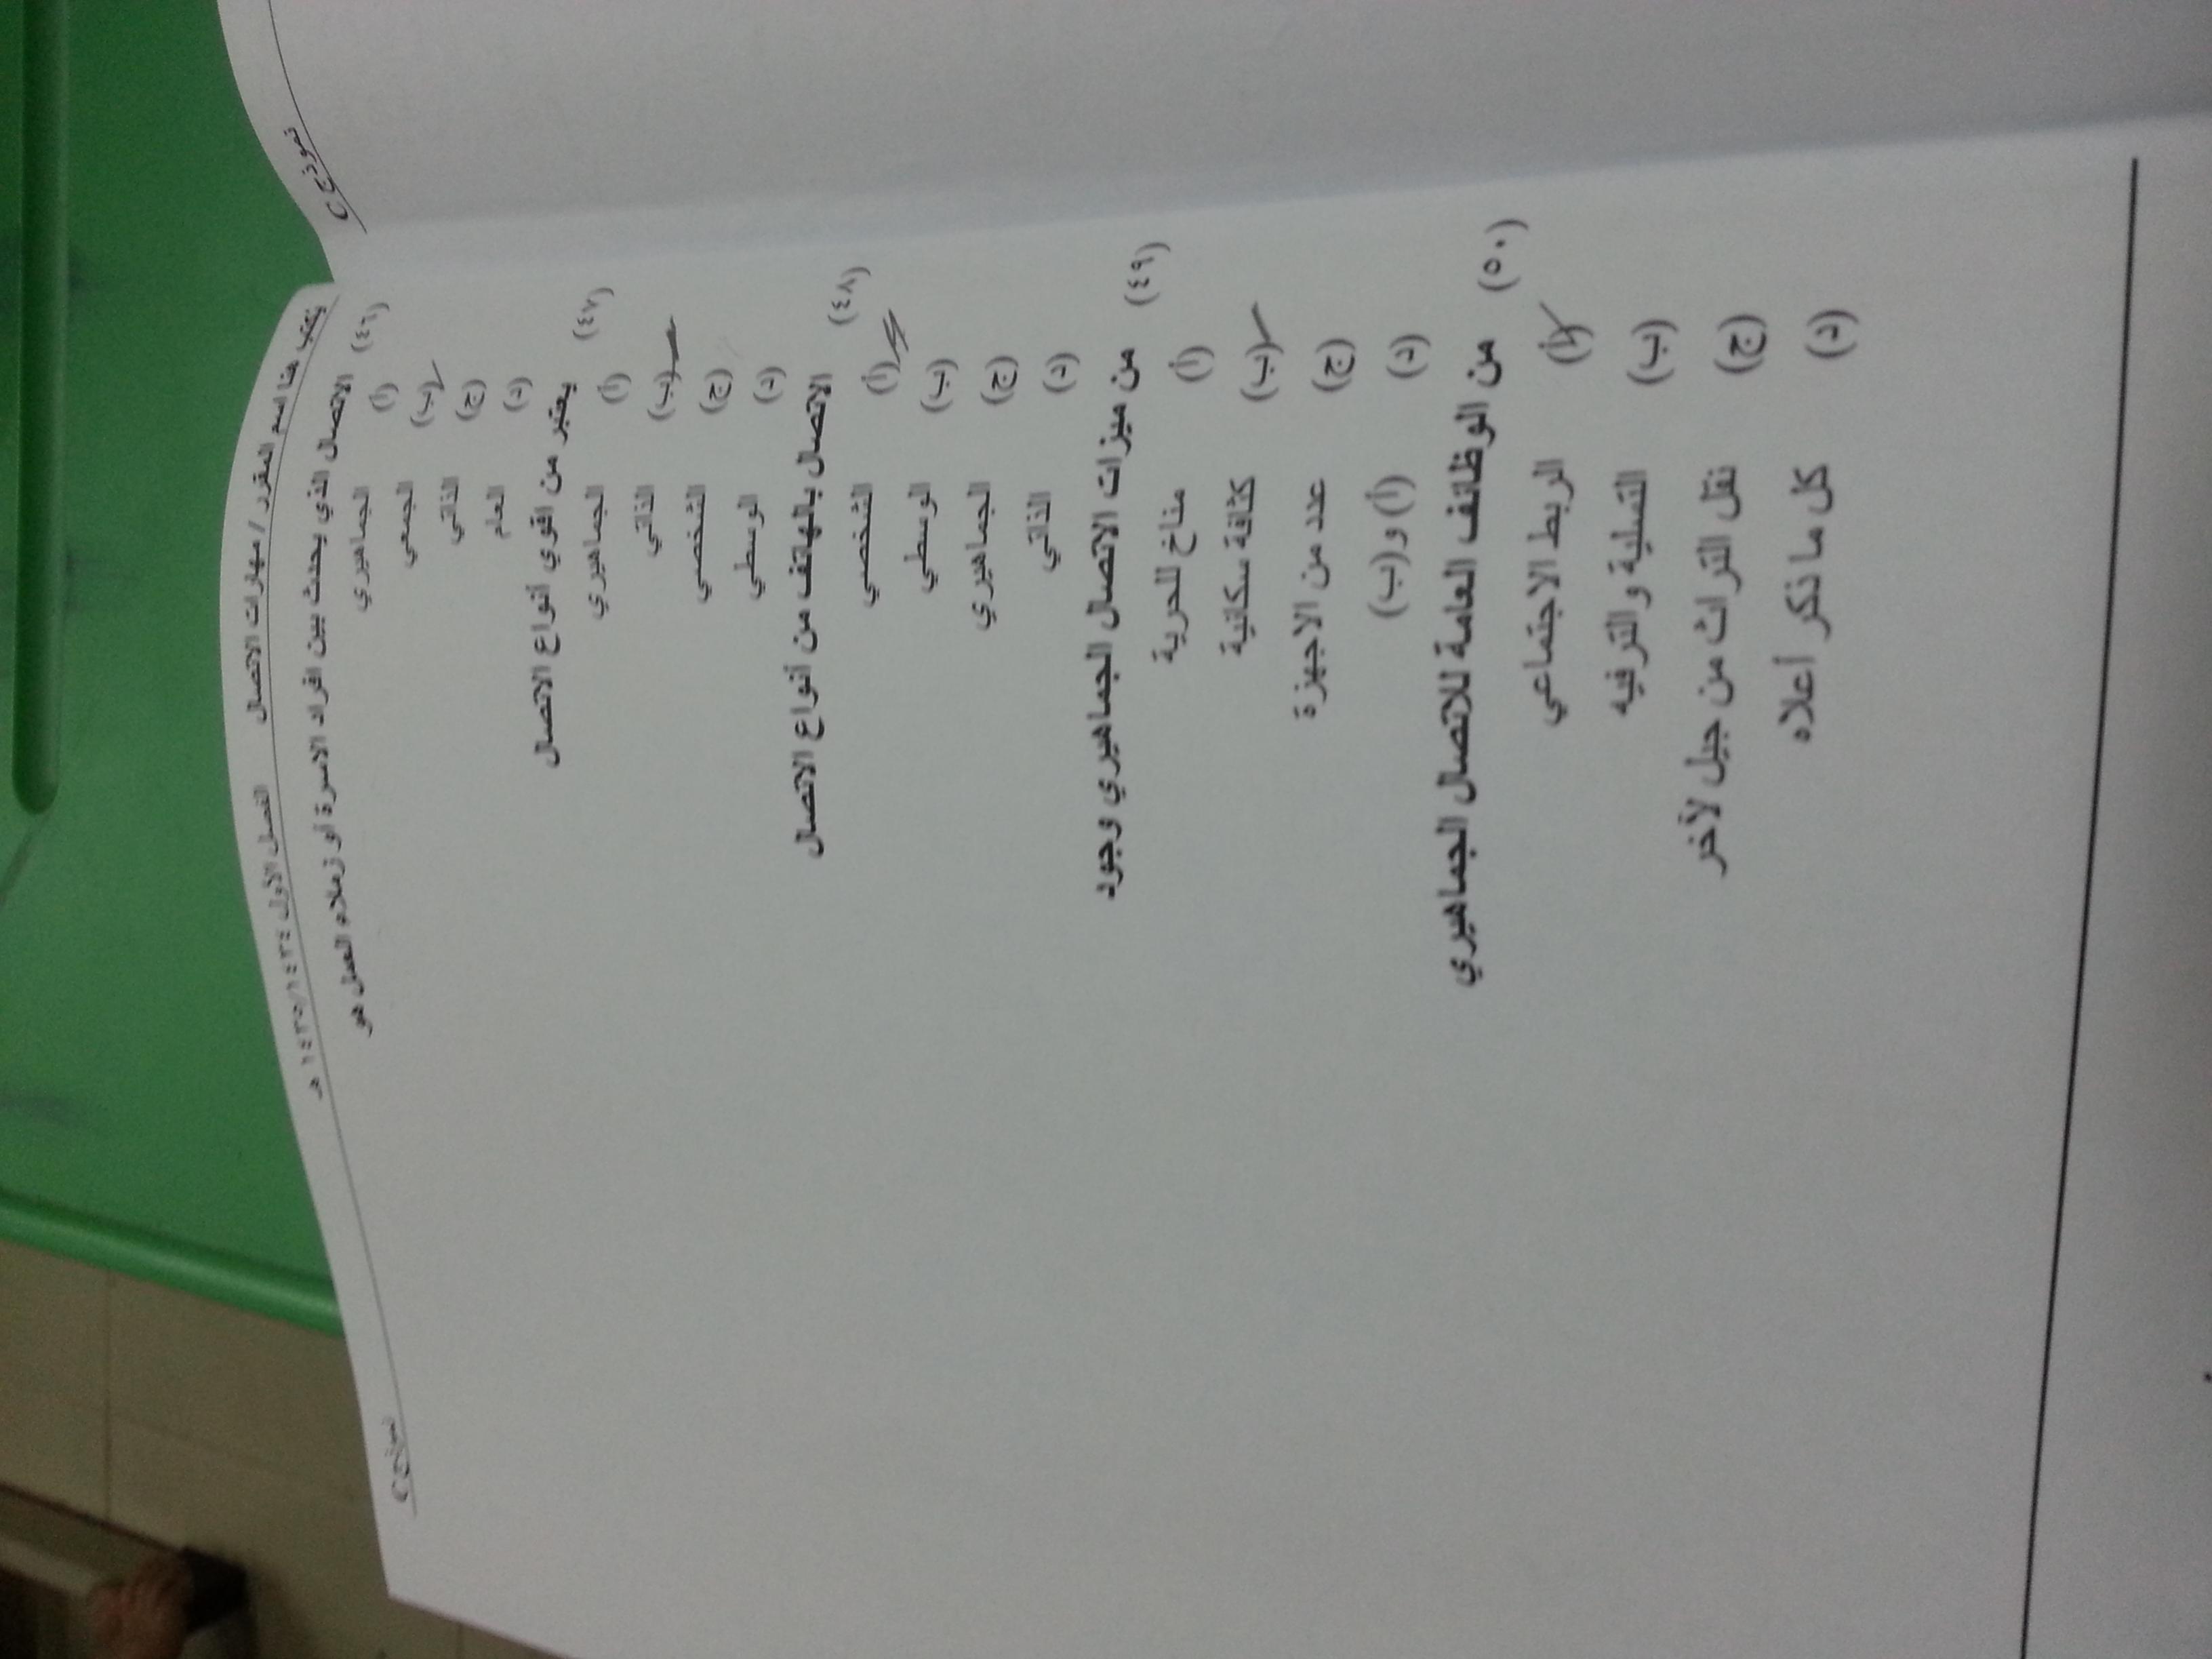 نموذج C
يكتب هنا اسم المقرر / مهارات الاتصال الفصل الأول ١٤٣٤/١٤٣٥ هـ نموذج C
(٤٦) الاتصال الذي يحدث بين افراد الاسرة أو زملاء العمل هو
(أ) الجماهيري
(ب) الجمعي
(ج) الذاتي
(د) العام
(٤٧) يعتبر من اقوي أنواع الاتصال
(أ) الجماهيري
(ب) الذاتي
(ج) الشخصي
(د) الوسطي
(٤٨) الاتصال بالهاتف من أنواع الاتصال
(أ) الشخصي
(ب) الوسطي
(ج) الجماهيري
(د) الذاتي
(٤٩) من ميزات الاتصال الجماهيري وجود
(أ) مناخ للحرية
(ب) كثافة سكانية
(ج) عدد من الاجهزة
(د) (أ) و (ب)
(٥٠) من الوظائف العامة للاتصال الجماهيري
(أ) الربط الاجتماعي
(ب) التسلية والترفيه
(ج) نقل التراث من جيل لآخر
(د) كل ما ذكر أعلاه